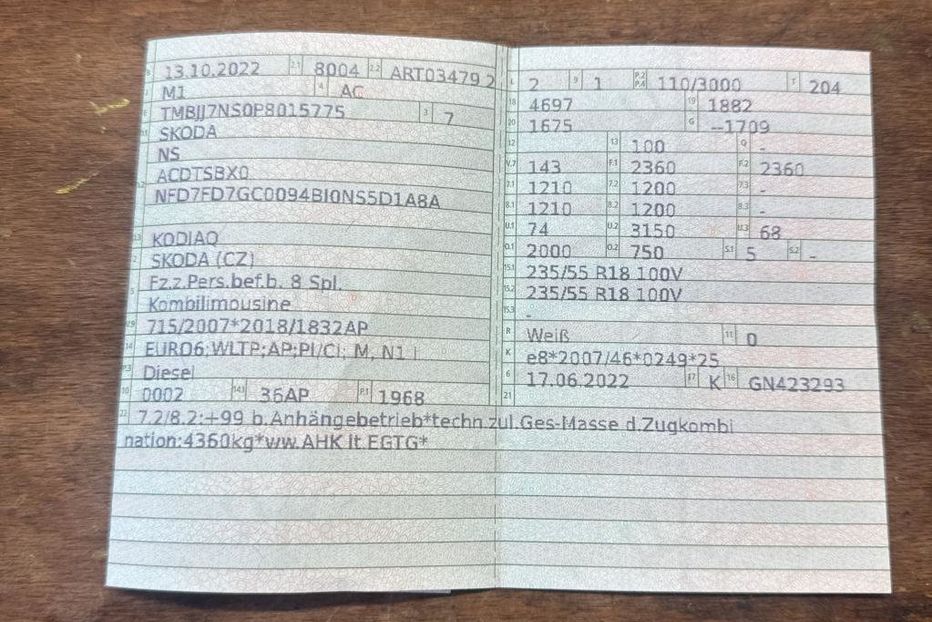 B 13.10.2022 2.1 8004 2.2 ART03479 2
M1 4 AC
E TMBJJ7NS0P8015775 3 7
D.1 SKODA
NS
ACDTSBX0
D.2 NFD7FD7GC0094BI0NS5D1A8A
D.3 KODIAQ
2 SKODA (CZ)
5 Fz.z.Pers.bef.b. 8 Spl.
Kombilimousine
V.9 715/2007*2018/1832AP
14 EURO6;WLTP;AP;PI/CI; M, N1 I
P.3 Diesel
10 0002 14.1 36AP P.1 1968
22 7.2/8.2:+99 b.Anhängebetrieb*techn.zul.Ges-Masse d.Zugkombi
nation:4360kg*ww.AHK lt.EGTG*
L 2 9 1 P.2 P.4 110/3000 T 204
18 4697 19 1882
20 1675 G --1709
12 13 100 Q -
V.7 143 F.1 2360 F.2 2360
7.1 1210 7.2 1200 7.3 -
8.1 1210 8.2 1200 8.3 -
U.1 74 U.2 3150 U.3 68
O.1 2000 O.2 750 S.1 5 S.2 -
15.1 235/55 R18 100V
15.2 235/55 R18 100V
15.3 -
R Weiß 11 0
K e8*2007/46*0249*25
6 17.06.2022 17 K 16 GN423293
21